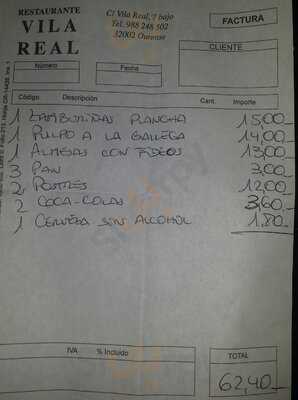 RESTAURANTE
VILA
REAL
C/ Vila Real, 7 bajo
Tel. 988 248 502
32002 Ourense
FACTURA
CLIENTE
Número
Fecha
Código Descripción Cant. Importe
1 ZAMBURIÑAS PLANCHA 15,00
1 PULPO A LA GALLEGA 14,00
1 ALMEJAS CON FIDEOS 13,00
3 PAN 3,00
2 POSTRES 12,00
2 COCA-COLAS 3,60
1 CERVEZA SIN ALCOHOL 1,80
IVA % Incluido
TOTAL
62,40